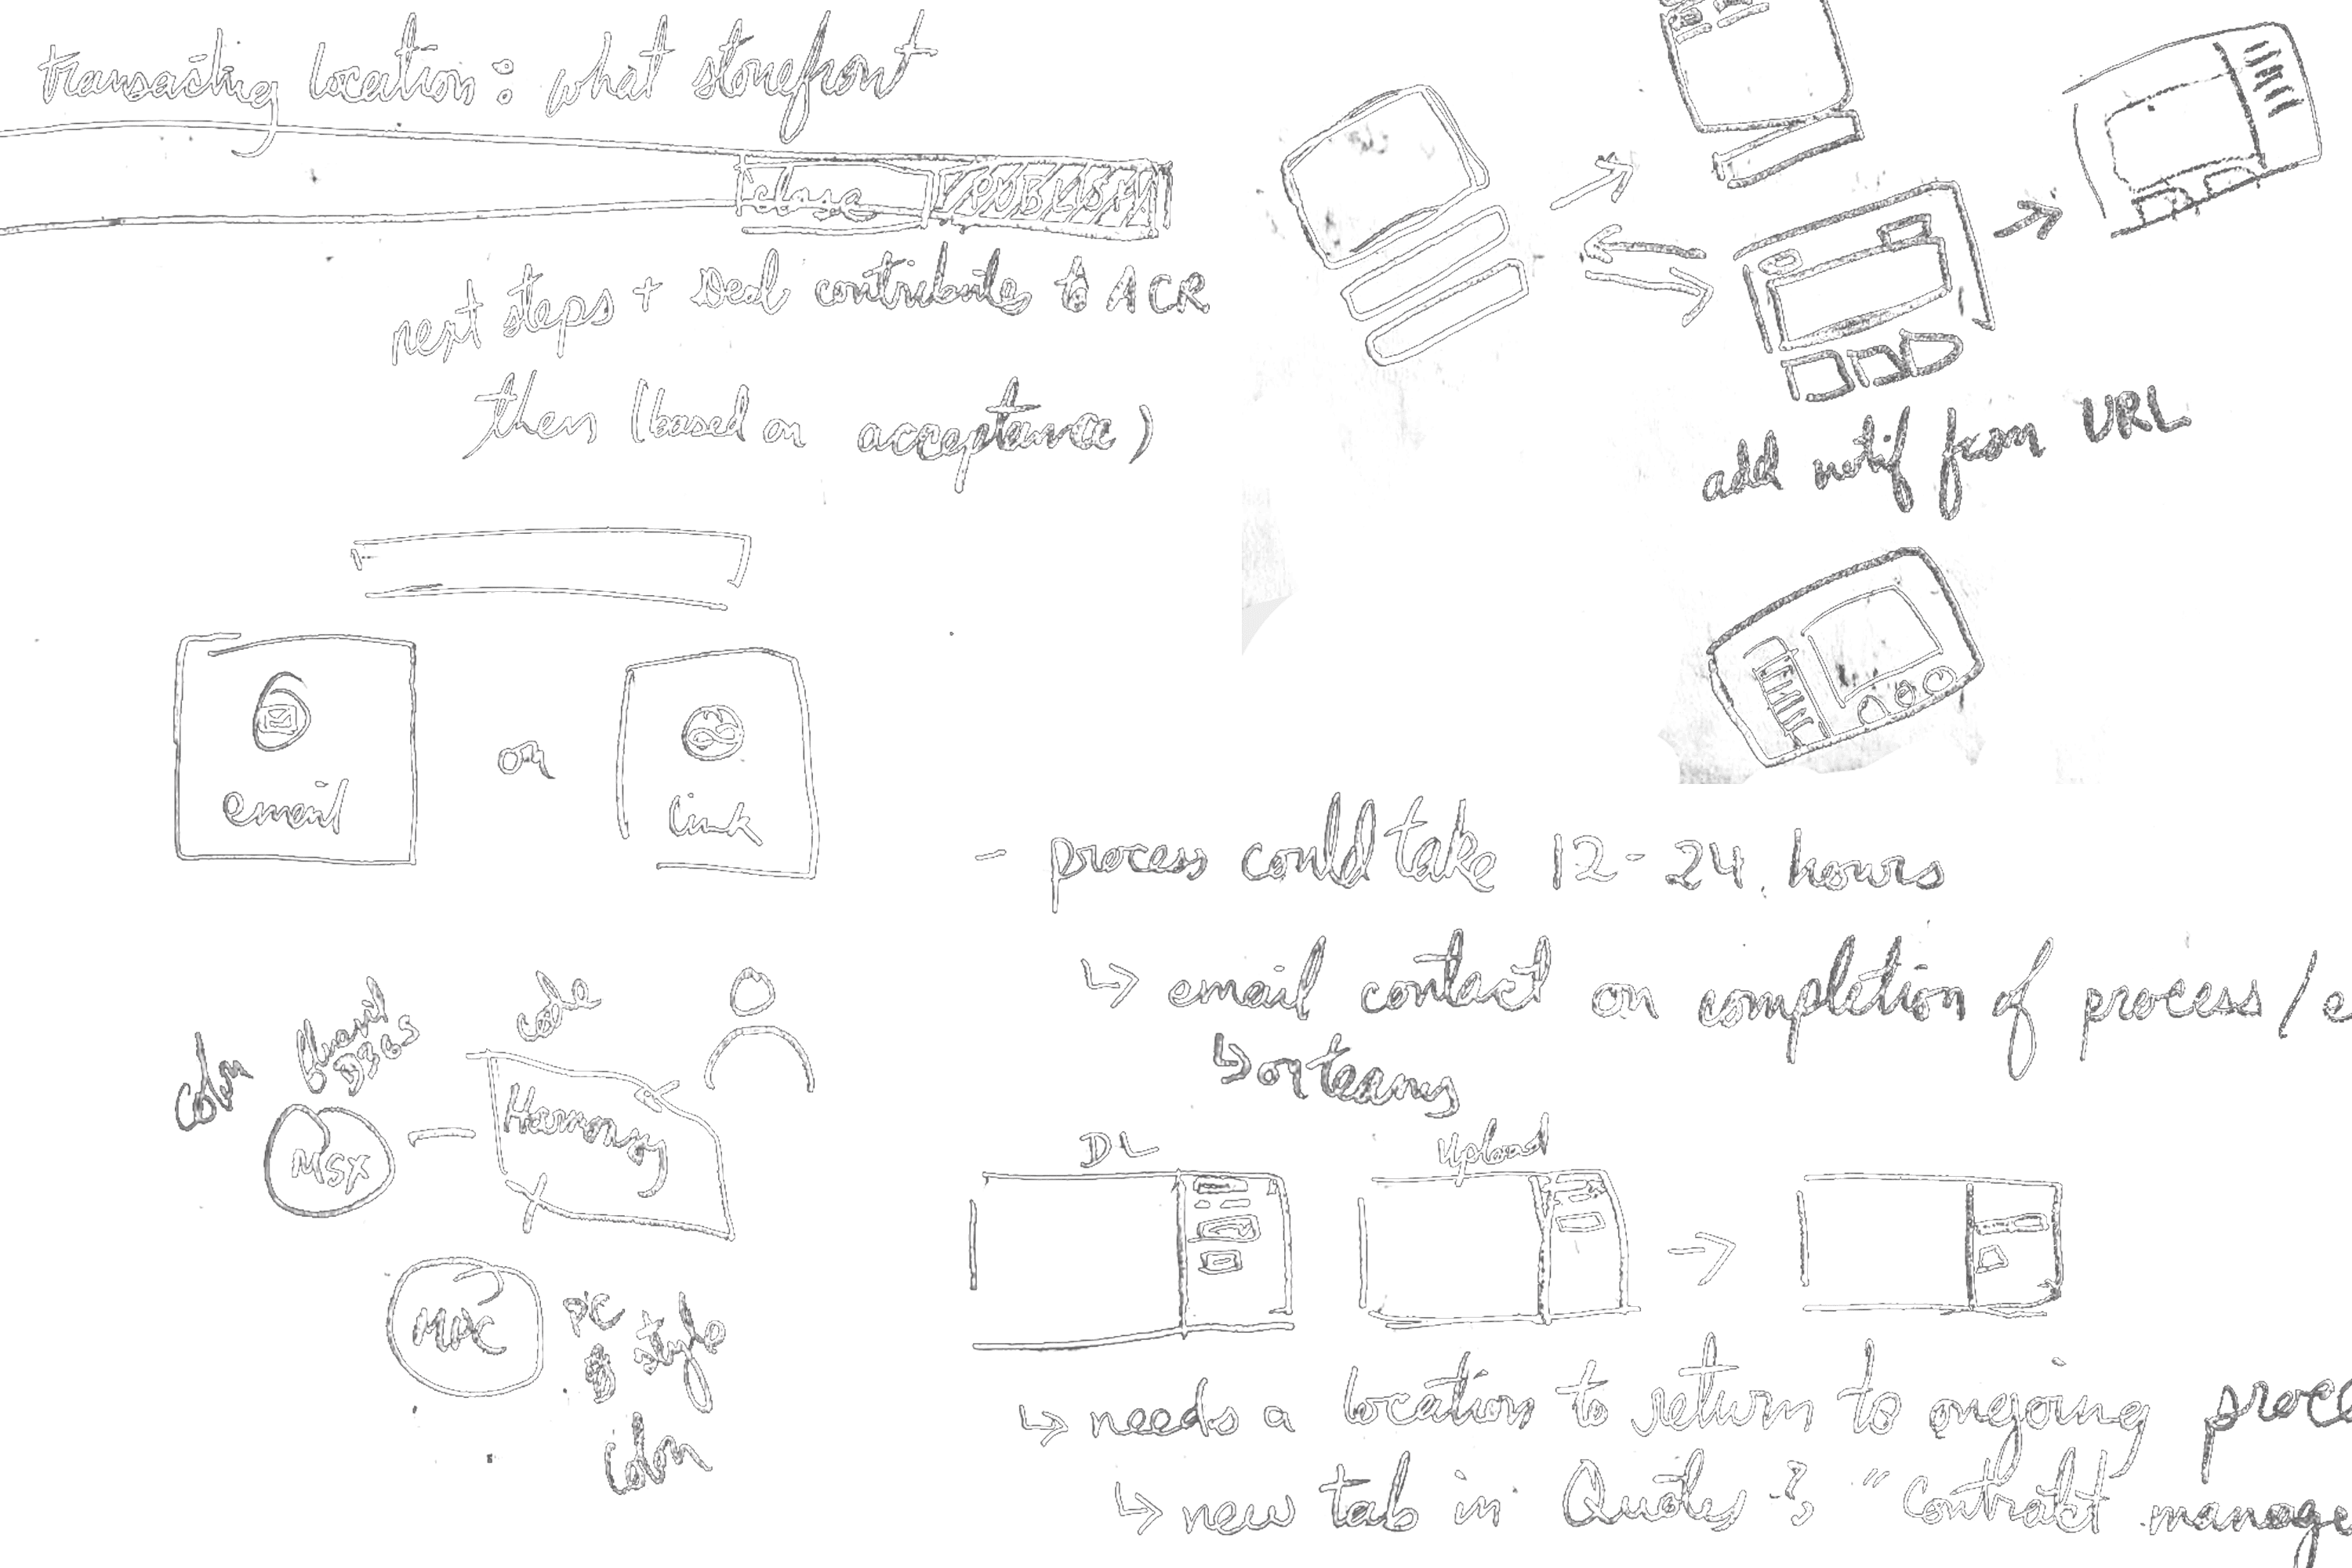 transacting location: what storefront
close PUBLISH
next steps + Deal contributes to ACR
then (based on acceptance)
add notif from URL
email
or
link
- process could take 12-24 hours
↳ email contact on completion of process / e
↳ or teams
code
D365
MSX
Harmony
PC style
DL
Upload
↳ needs a location to return to ongoing proce
↳ new tab in Quotes & "contract manage